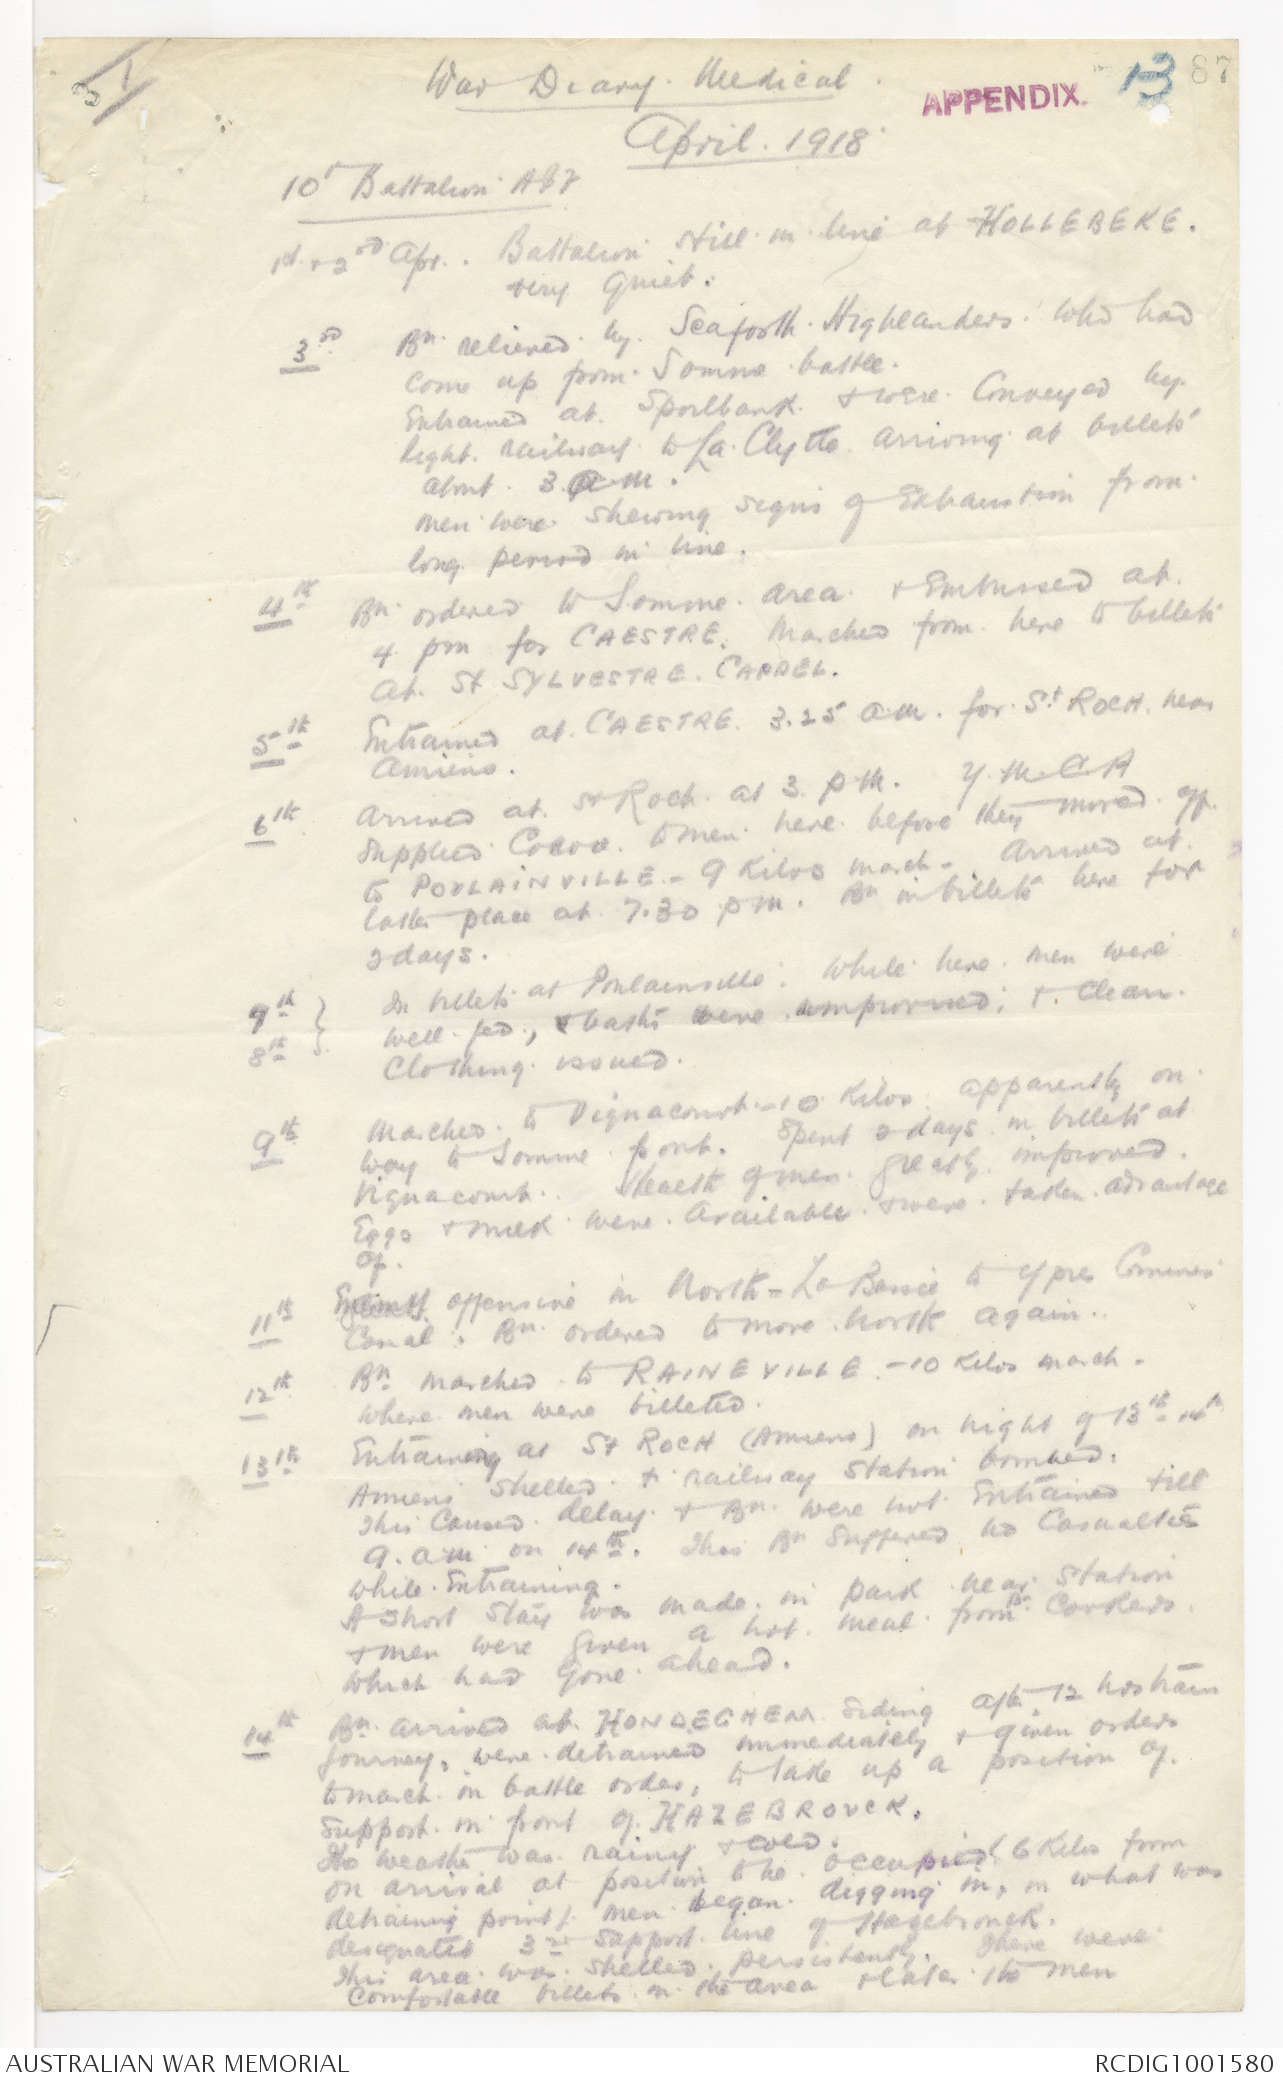 3/1
War Diary. Medical.
APPENDIX. 13 87
April. 1918
10t Battalion AIF
1st + 2nd Apr. Battalion still in line at HOLLEBEKE.
very quiet.
3rd Bn relieved by Seaforth Highlanders who had
come up from Somme battle.
Entrained at Spoilbank & were conveyed by
light railway to La Clytte arriving at billets
about 3 am.
Men were shewing signs of exhaustion from
long period in line.
4th Bn ordered to Somme area & Embussed at
4 pm for CAESTRE. Marched from here to billets
at St SYLVESTRE. CAPPEL.
5th Entrained at CAESTRE 3.25 am. for St ROCH near
Amiens.
6th Arrived at St Roch at 3 p.m. Y.M.C.A
supplied Cocoa to men here before they moved off
to POULAINVILLE - 9 Kilos march - Arrived at
latter place at 7.30 pm. Bn in billets here for
2 days.
7th
8th } In billets at Poulainville. While here men were
well fed, & baths were improvised; & clean
clothing issued.
9th Marched to Vignacourt - 10 Kilos apparently on
way to Somme front. Spent 2 days in billets at
Vignacourt. Health of men greatly improved.
Eggs & milk were available & were taken advantage
of.
11th offensive in North - La Bassie to Ypres Comines
Canal. Bn ordered to move North again.
12th Bn marched to RAINEVILLE - 10 Kilos march -
where men were billeted.
13th Entraining at St ROCH (Amiens) on night of 13th-14th
Amiens shelled & railway station bombed.
This caused delay & Bn were not Entrained till
9. am on 14th. This Bn suffered no Casualties
while Entraining.
A short stay was made in park near station
& men were given a hot meal from Cookers
which had gone ahead.
14th Bn arrived at HONDEGHEM siding after 12 hrs train
journey, were detrained immediately & given orders
to march in battle order, to take up a position of
support in front of HAZEBROUCK.
The weather was rainy & cold.
On arrival at position to be occupied (6 Kilos from
detraining point) men began digging in, in what was
designated 3rd support line of Hazebrouck.
This area was shelled persistently. There were
comfortable billets in the area & later the men
AUSTRALIAN WAR MEMORIAL RCDIG1001580